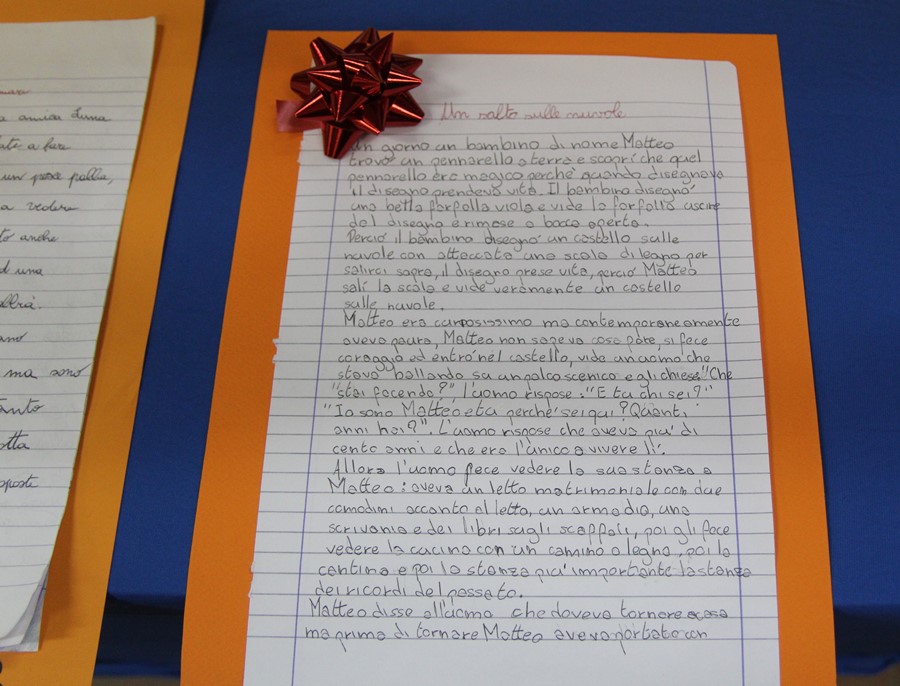 a amica Luna
te a fare
un posa palla,
a vedere
to anche
d una
ma sono
tanto
otta
oposte
Un salto sulle nuvole
Un giorno un bambino di nome Matteo
trovò un pennarello a terra e scoprì che quel
pennarello era magico perché quando disegnava
il disegno prendeva vita. Il bambino disegnò
una bella farfalla viola e vide la farfalla uscire
dal disegno e rimase a bocca aperta.
Perciò il bambino disegnò un castello sulle
nuvole con attaccata una scala di legno per
salirci sopra, il disegno prese vita, perciò Matteo
salì la scala e vide veramente un castello
sulle nuvole.
Matteo era curiosissimo ma contemporaneamente
aveva paura, Matteo non sapeva cosa fare, si fece
coraggio ed entrò nel castello, vide un uomo che
stava ballando su un palcoscenico e gli chiese: "Che
"stai facendo?" l'uomo rispose: "E tu chi sei?"
"Io sono Matteo e tu perché sei qui? Quanti
anni hai?". L'uomo rispose che aveva più di
cento anni e che era l'unico a vivere lì.
Allora l'uomo fece vedere la sua stanza a
Matteo: aveva un letto matrimoniale con due
comodini accanto al letto, un armadio, una
scrivania e dei libri sugli scaffali, poi gli fece
vedere la cucina con un camino a legna, poi la
cantina e poi la stanza più importante la stanza
dei ricordi del passato.
Matteo disse all'uomo che doveva tornare a casa
ma prima di tornare Matteo aveva portato con